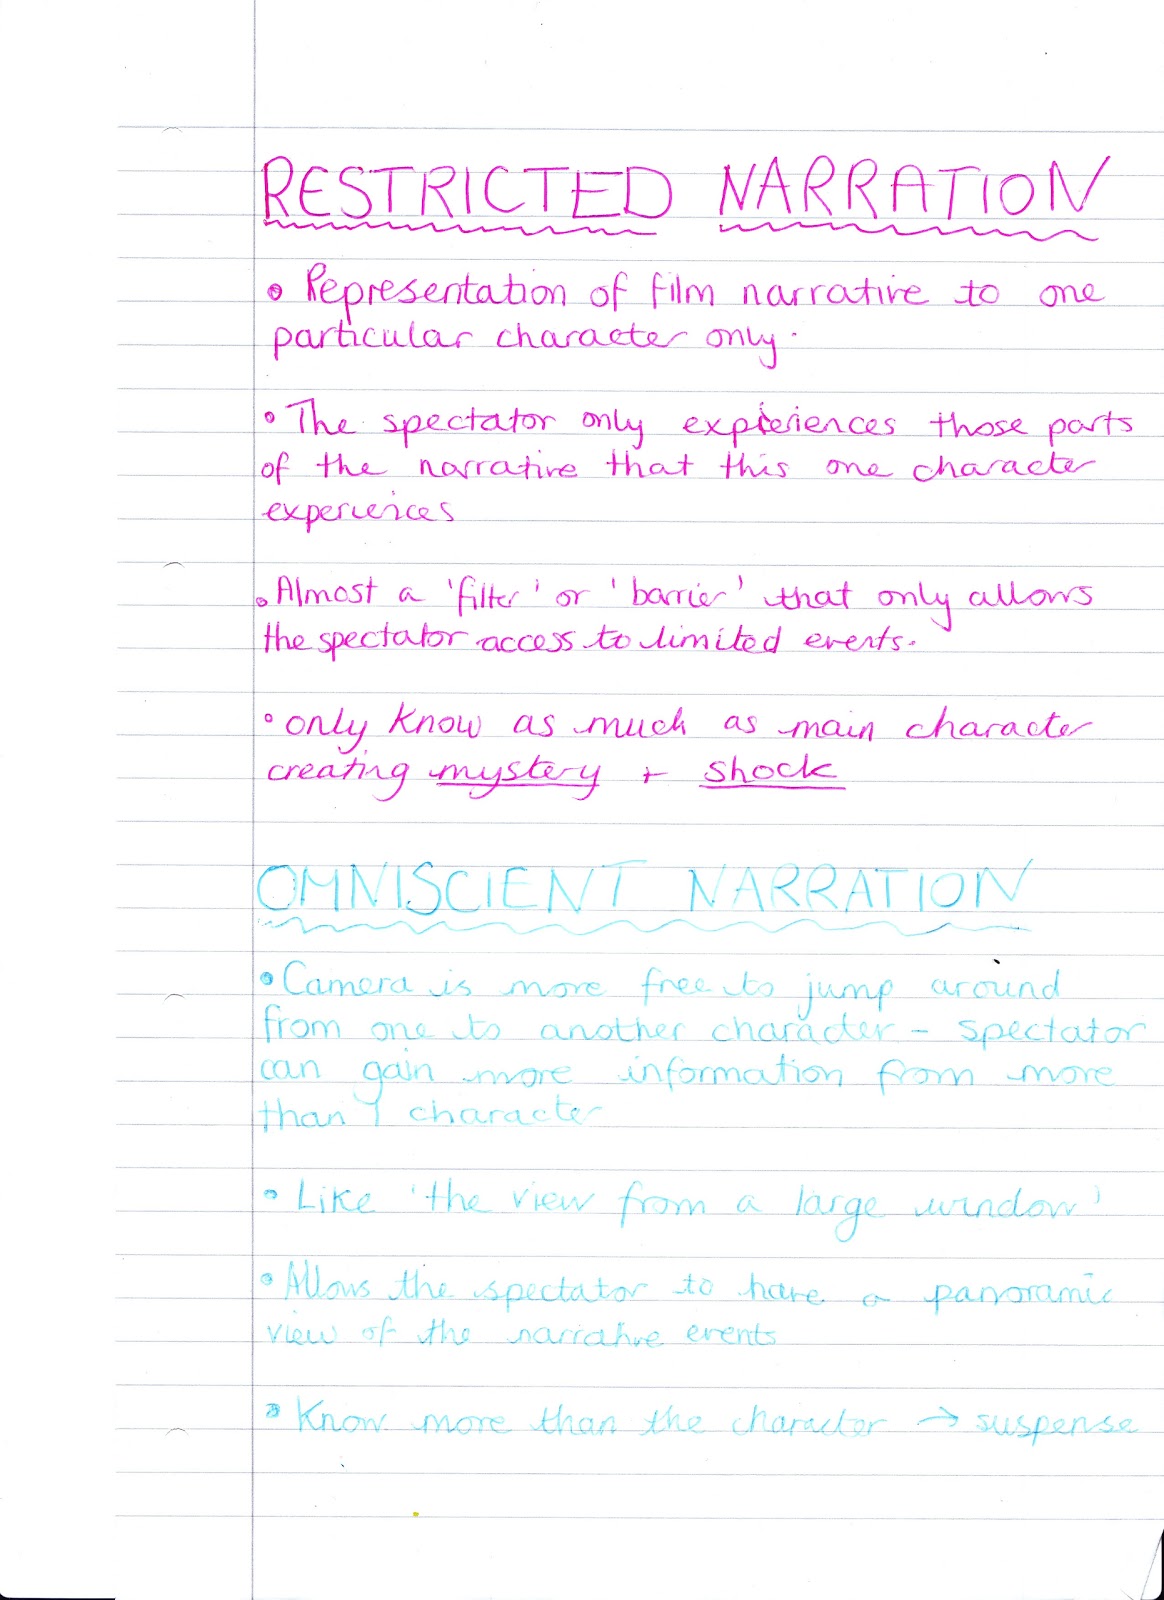 RESTRICTED NARRATION
• Representation of film narrative to one
particular character only.
• The spectator only experiences those parts
of the narrative that this one character
experiences
• Almost a 'filter' or 'barrier' that only allows
the spectator access to limited events.
• only know as much as main character
creating mystery + shock
OMNISCIENT NARRATION
• Camera is more free to jump around
from one to another character - spectator
can gain more information from more
than 1 character
• Like 'the view from a large window'
• Allows the spectator to have a panoramic
view of the narrative events
• Know more than the character → suspense